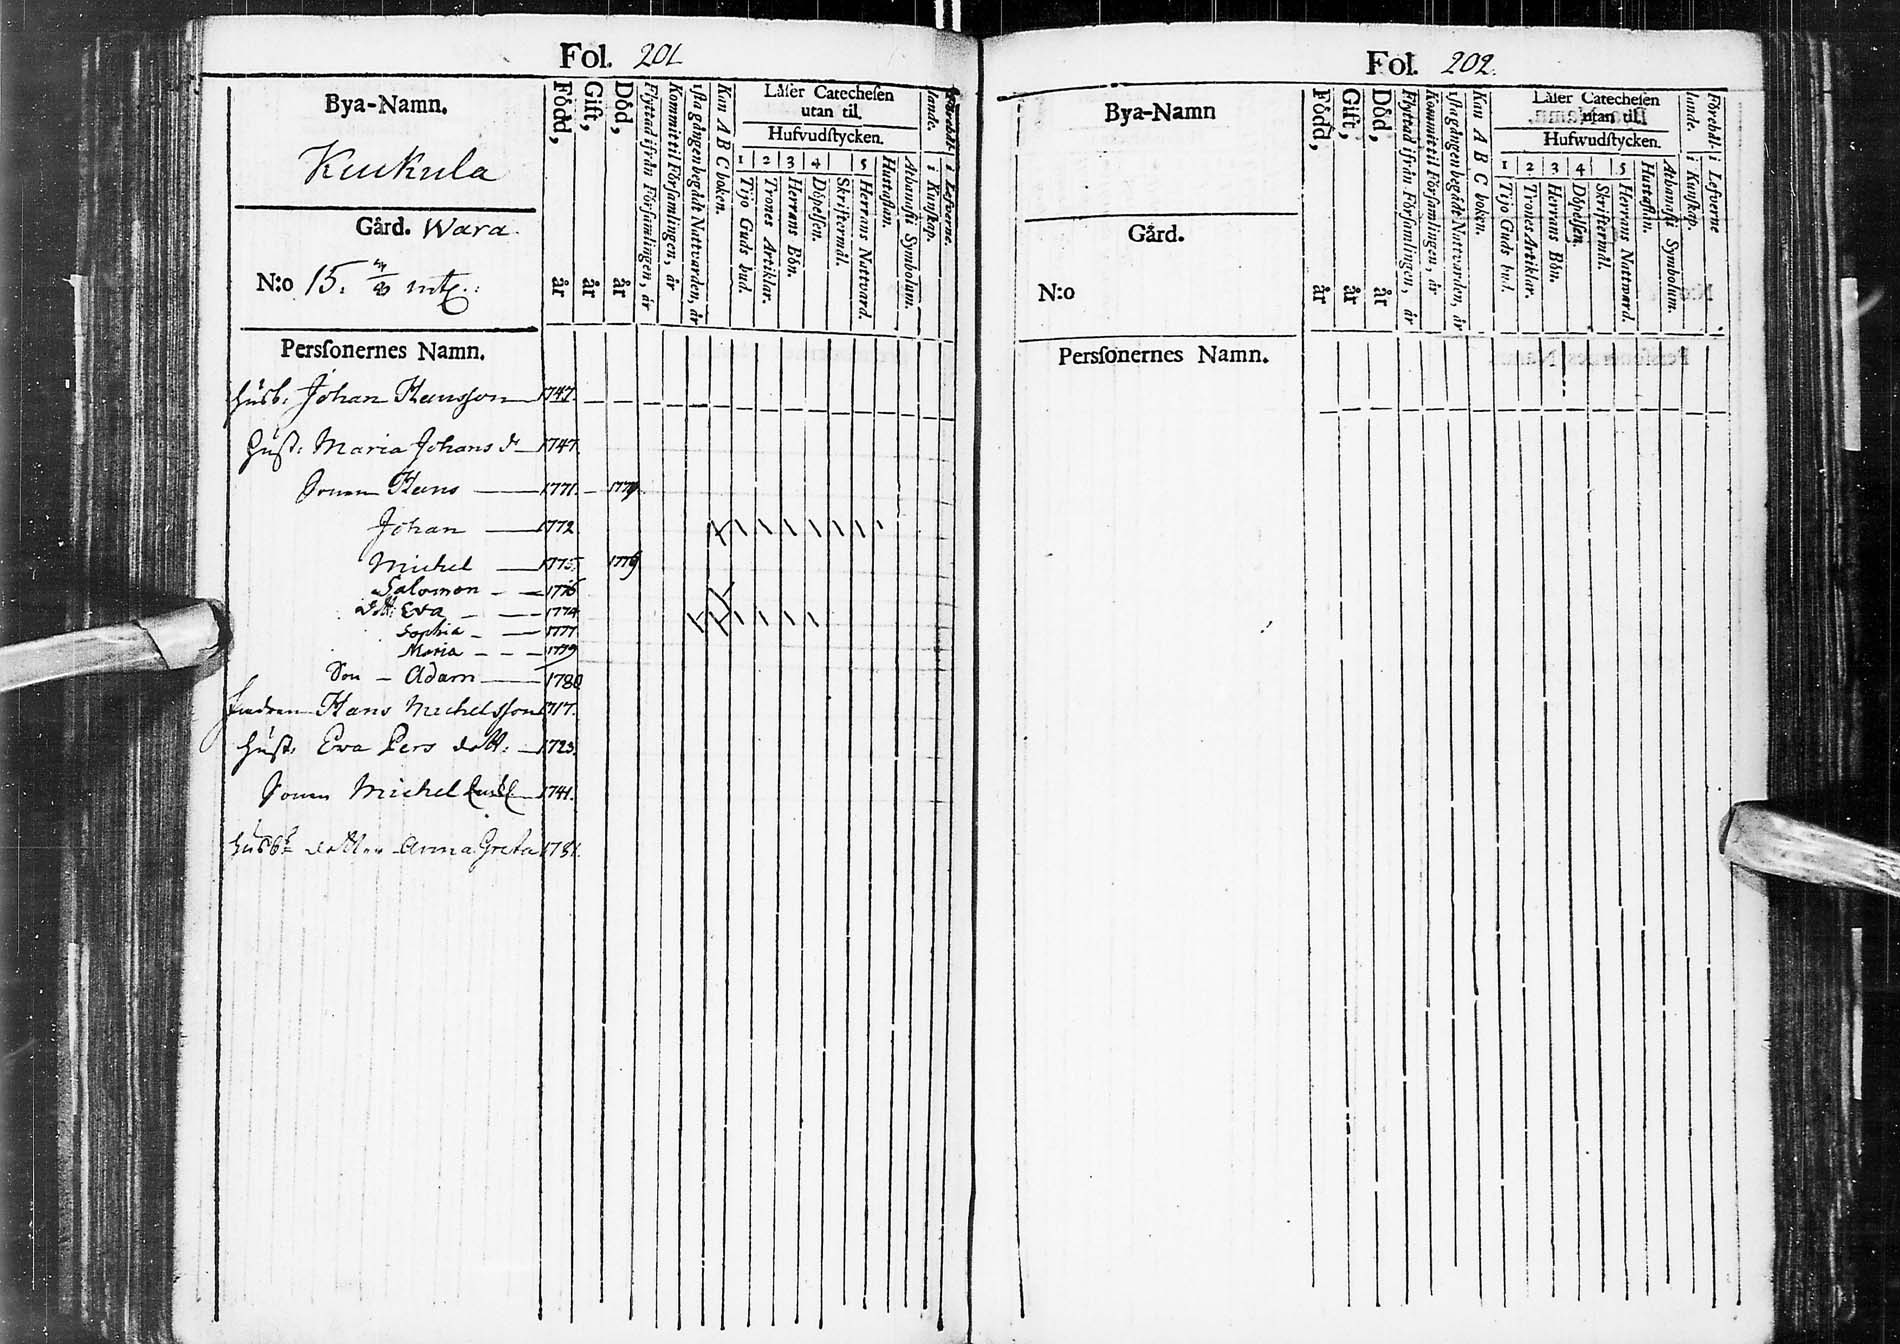 Fol. 201
Bya-Namn.
Kuukula
Gård. Wara.
N:o 15.
Född, år
Gift, år
Död, år
Flyttad ifrån Församlingen, år
Kommit til Församlingen, år
ista gången begådt Nattvarden, år
Kan A B C boken.
Läser Catechesen
utan til.
Hufvudstycken.
1 2 3 4 5
Tijo Guds bud.
Trones Artiklar.
Herrans Bön.
Döpelsen.
Skriftermål.
Herrans Nattvard.
Hustaflan.
Athanasii Symbolum.
i Kunskap.
i Lefverne.
Personernes Namn.
Husb. Johan Hansson 1747.
Hust. Maria Johans d. 1747.
Sonen Hans 1771. 1779
Johan 1772
Michel 1775 1776
Salomon 1776
Dott: Eva 1774
Sophia 1777
Maria 1779
Son Adam 1780
Fadren Hans Michelsson 1717.
Hust. Eva Pers dott: 1723.
Sonen Michel 1741.
Husb:s dotter Anna Greta 1781.
Fol. 202.
Bya-Namn
Gård.
N:o
Född, år
Gift, år
Död, år
Flyttad ifrån Församlingen, år
Kommit til Församlingen, år
ista gången begådt Nattvarden, år
Kan A B C boken.
Läser Catechesen
utan til.
Hufwudstycken.
1 2 3 4 5
Tijo Guds bud.
Trones Artiklar.
Herrans Bön.
Döpelsen.
Skriftermål.
Herrans Nattward.
Hustaflan.
Athanasii Symbolum.
i Kunskap.
i Lefverne
Personernes Namn.